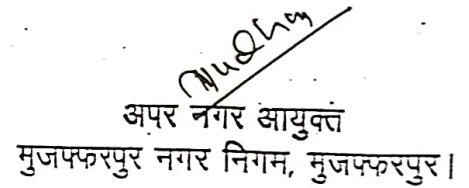 अपर नगर आयुक्त
मुजफ्फरपुर नगर निगम, मुजफ्फरपुर।